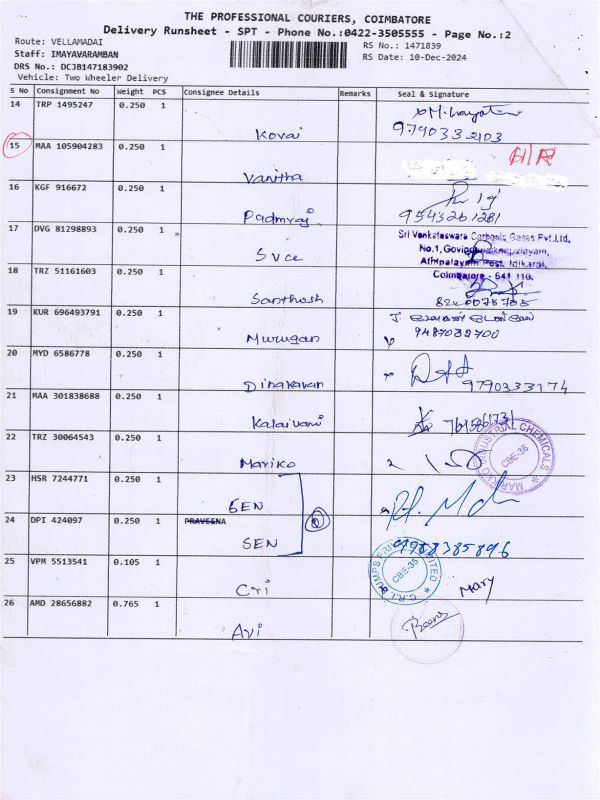 THE PROFESSIONAL COURIERS, COIMBATORE
Delivery Runsheet - SPT - Phone No.:0422-3505555 - Page No.:2
Route: VELLAMADAI
RS No.: 1471839
Staff: IMAYAVARAMBAN
RS Date: 10-Dec-2024
DRS No.: DCJB147183902
Vehicle: Two Wheeler Delivery
S No Consignment No Weight PCS Consignee Details Remarks Seal & Signature
14 TRP 1495247 0.250 1
Kovai 9790332103
15 MAA 105904283 0.250 1
Vanitha
16 KGF 916672 0.250 1
Padmraj 9543261281
17 DVG 81298893 0.250 1
Svce
Sri Venkateswara Carbonic Gases Pvt.Ltd.,
Athipalayam Post, Idikarai,
Coimbatore - 641 110.
18 TRZ 51161603 0.250 1
Santhosh
19 KUR 696493791 0.250 1
Murugan 9487032700
20 MYD 6586778 0.250 1
Dinakaran 9790333174
21 MAA 301838688 0.250 1
Kalaivani
22 TRZ 30064543 0.250 1
Mariko
MARIKO INDUSTRIAL CHEMICALS
CBE-35
23 HSR 7244771 0.250 1
SEN
24 DPI 424097 0.250 1 PRAVEENA
SEN
25 VPM 5513541 0.105 1
Cri
C.R.I. PUMPS PRIVATE LIMITED
CBE-35
Mary
26 AMD 28656882 0.765 1
Avi